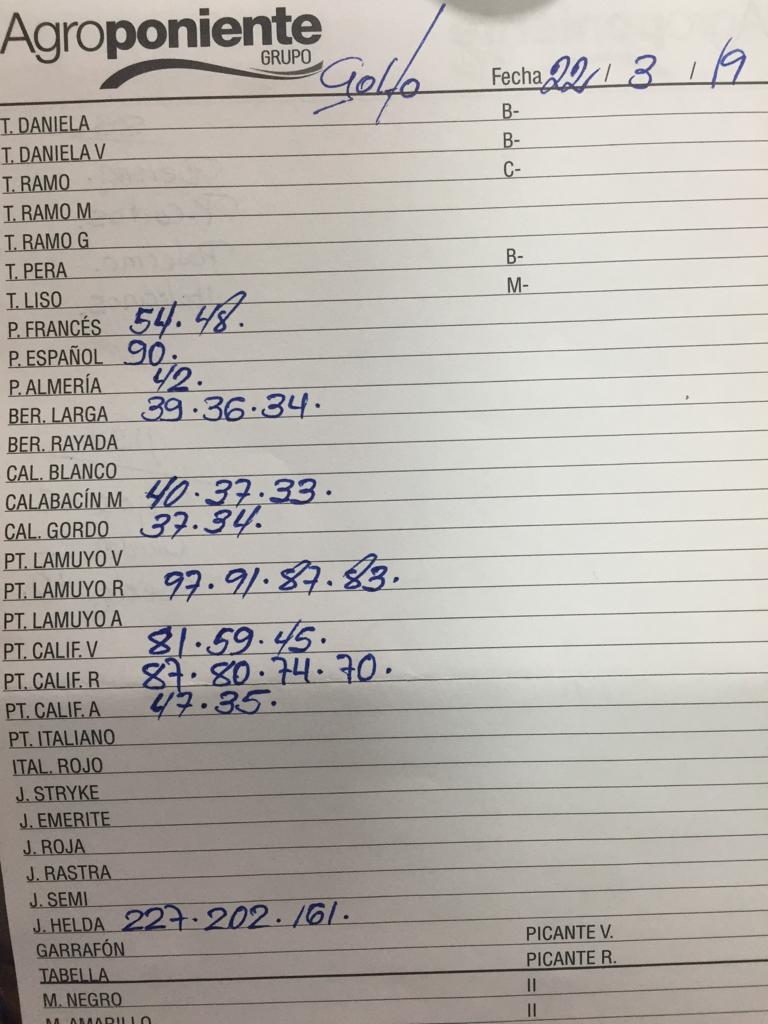 Agroponiente
GRUPO
Golfo
Fecha 22 / 3 / 19
T. DANIELA B-
T. DANIELA V B-
T. RAMO C-
T. RAMO M
T. RAMO G
T. PERA B-
T. LISO M-
P. FRANCÉS 54. 48.
P. ESPAÑOL 90.
P. ALMERÍA 42.
BER. LARGA 39.36.34.
BER. RAYADA
CAL. BLANCO
CALABACÍN M 40.37.33.
CAL. GORDO 37.34.
PT. LAMUYO V
PT. LAMUYO R 97.91.87.83.
PT. LAMUYO A
PT. CALIF. V 81.59.45.
PT. CALIF. R 87.80.74.70.
PT. CALIF. A 47.35.
PT. ITALIANO
ITAL. ROJO
J. STRYKE
J. EMERITE
J. ROJA
J. RASTRA
J. SEMI
J. HELDA 227.202.161.
GARRAFÓN PICANTE V.
TABELLA PICANTE R.
M. NEGRO II
M. AMARILLO II